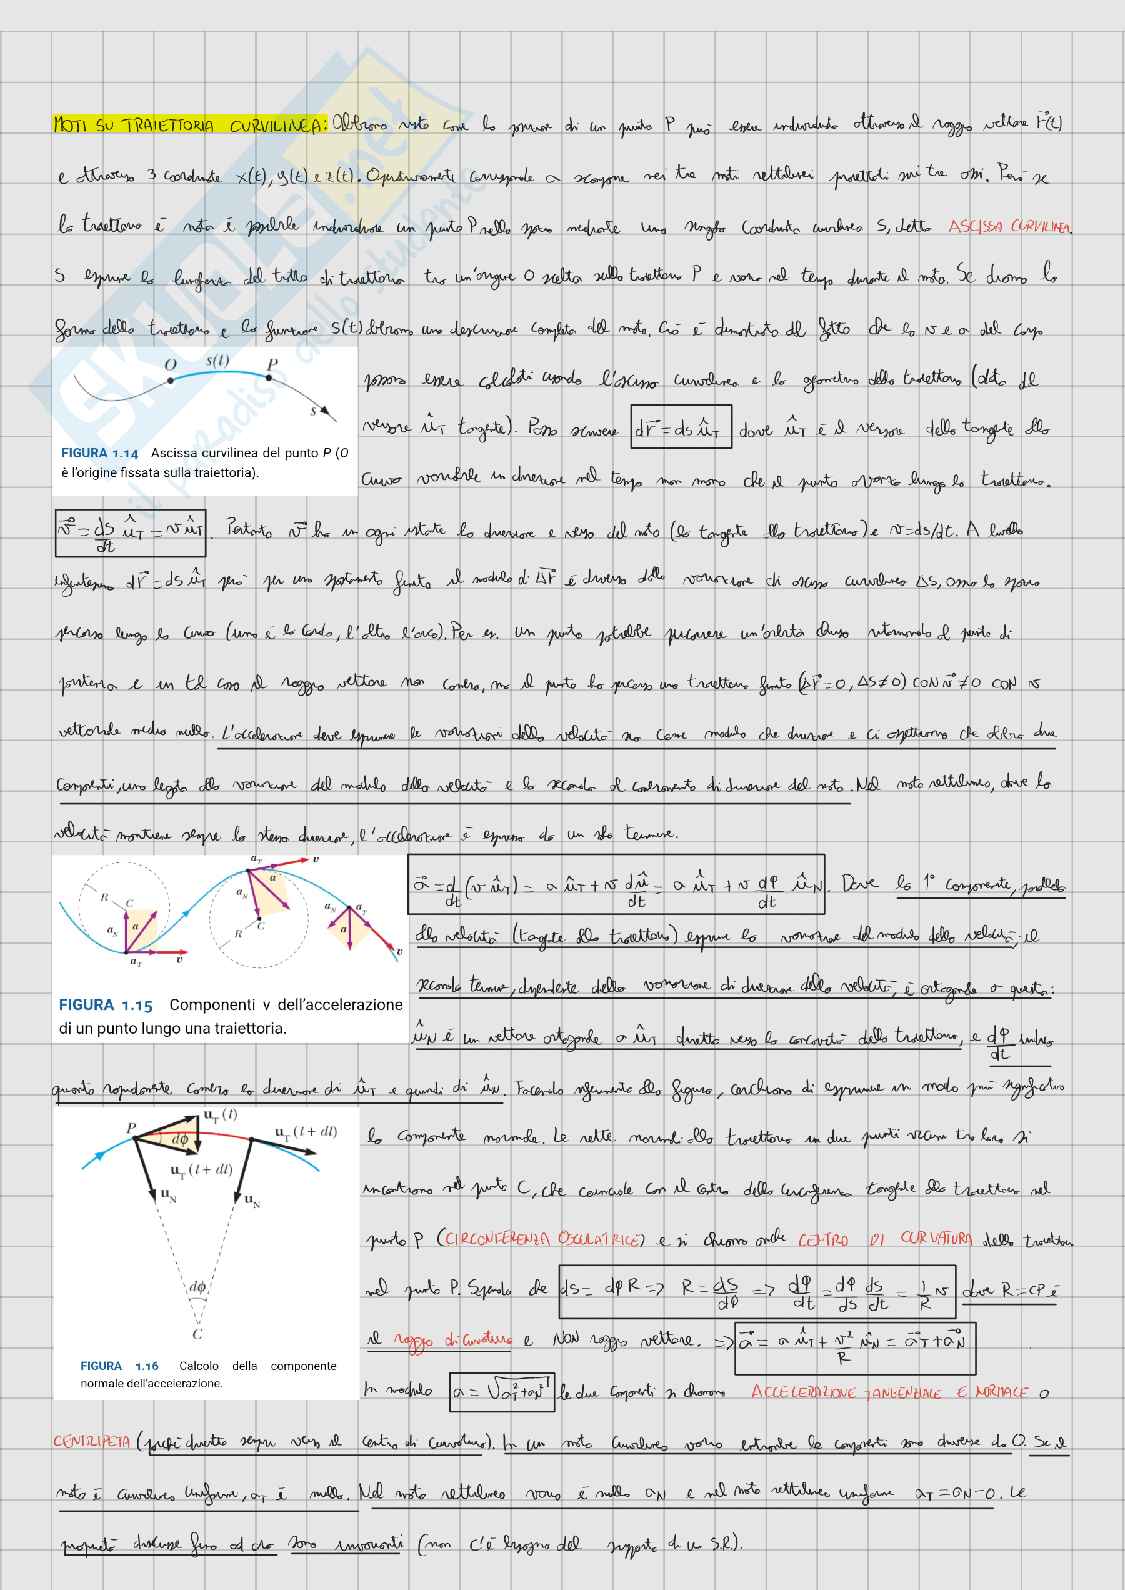 MOTI SU TRAIETTORIA CURVILINEA: Abbiamo visto come la posizione di un punto P può essere individuata attraverso il raggio vettore r⃗(t)
e attraverso 3 coordinate x(t), y(t) e z(t). Operativamente corrisponde a scomporre nei tre moti rettilinei proiettati sui tre assi. Però se
la traiettoria è nota è possibile individuare un punto P nello spazio mediante una singola coordinata curvilinea S, detta ASCISSA CURVILINEA.
S esprime la lunghezza del tratto di traiettoria tra un'origine O scelta sulla traiettoria P e varia nel tempo durante il moto. Se diamo la
forma della traiettoria e la funzione S(t) abbiamo una descrizione completa del moto. Ciò è dimostrato dal fatto che la v e a del corpo
O s(t) P s
FIGURA 1.14 Ascissa curvilinea del punto P (O
è l'origine fissata sulla traiettoria).
possono essere calcolati usando l'ascissa curvilinea e la geometria della traiettoria (data dal
versore û_T tangente). Posso scrivere dr⃗ = ds û_T dove û_T è il versore della tangente alla
curva variabile in direzione nel tempo man mano che il punto avanza lungo la traiettoria.
v⃗ = ds/dt û_T = v û_T. Pertanto v⃗ ha in ogni istante la direzione e verso del moto (la tangente alla traiettoria) e v=ds/dt. A livello
infinitesimo dr⃗ = ds û_T però per uno spostamento finito il modulo di Δr⃗ è diverso dalla variazione di ascissa curvilinea ΔS, ossia lo spazio
percorso lungo la curva (uno è la corda, l'altro l'arco). Per es. un punto potrebbe percorrere un'orbita chiusa ritornando al punto di
partenza e in tal caso il raggio vettore non cambia, ma il punto ha percorso una traiettoria finita (Δr⃗ = 0, ΔS ≠ 0) CON v⃗ ≠ 0 CON v
vettoriale media nulla. L'accelerazione deve esprimere le variazioni della velocità sia come modulo che direzione e ci aspettiamo che abbia due
componenti, una legata alla variazione del modulo della velocità e la seconda al cambiamento di direzione del moto. Nel moto rettilineo, dove la
velocità mantiene sempre la stessa direzione, l'accelerazione è espressa da un solo termine.
R C a_N a a_T v a_T v a_N a R C a_N a_T a v
FIGURA 1.15 Componenti v dell'accelerazione
di un punto lungo una traiettoria.
a⃗ = d/dt (v û_T) = a û_T + v dû/dt = a û_T + v dφ/dt û_N. Dove la 1° componente, parallela
alla velocità (tangente alla traiettoria) esprime la variazione del modulo della velocità; il
secondo termine, dipendente dalla variazione di direzione della velocità, è ortogonale a questa:
û_N è un vettore ortogonale a û_T diretto verso la concavità della traiettoria, e dφ/dt indica
quanto rapidamente cambia la direzione di û_T e quindi di û_N. Facendo riferimento alla figura, cerchiamo di esprimere in modo più significativo
P u_T(t) dφ u_T(t + dt) u_T(t + dt) u_N u_N dφ C
FIGURA 1.16 Calcolo della componente
normale dell'accelerazione.
la componente normale. Le rette normali alla traiettoria in due punti vicini tra loro si
incontrano nel punto C, che coincide con il centro della circonferenza tangente alla traiettoria nel
punto P (CIRCONFERENZA OSCULATRICE) e si chiama anche CENTRO DI CURVATURA della traiettoria
nel punto P. Sapendo che ds = dφ R => R = ds/dφ => dφ/dt = dφ/ds ds/dt = 1/R v dove R = CP è
il raggio di curvatura e NON raggio vettore. => a⃗ = a û_T + v²/R û_N = a⃗_T + a⃗_N
In modulo a = √(a_T² + a_N²) le due componenti si chiamano ACCELERAZIONE TANGENZIALE E NORMALE o
CENTRIPETA (perché diretta sempre verso il centro di curvatura). In un moto curvilineo vario entrambe le componenti sono diverse da 0. Se il
moto è curvilineo uniforme, a_T è nulla. Nel moto rettilineo vario è nulla a_N e nel moto rettilineo uniforme a_T = a_N = 0. Le
proprietà discusse fino ad ora sono invarianti (non c'è bisogno del supporto di un S.R.).
SKUOLA.net
il paradiso dello studente